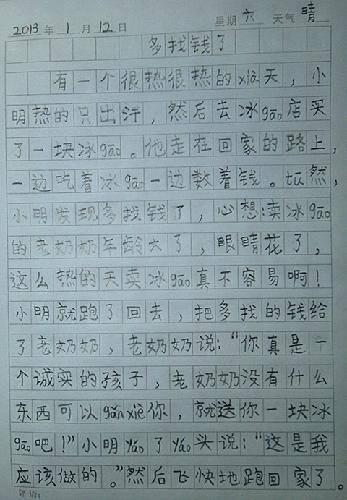 2013年1月12日 星期六 天气晴
多找钱了
有一个很热很热的xià天，小
明热的只出汗，然后去冰gāo店买
了一块冰gāo。他走在回家的路上，
一边吃着冰gāo一边数着钱。tū然，
小明发现多找钱了，心想：卖冰gāo
的老奶奶年龄大了，眼睛花了，
这么热的天卖冰gāo真不容易啊！
小明就跑了回去，把多找的钱给
了老奶奶，老奶奶说：“你真是一
个诚实的孩子，老奶奶没有什么
东西可以gǎn xiè你，就送你一块冰
gāo吧！”小明yáo了yáo头说：“这是我
应该做的。”然后飞快地跑回家了。